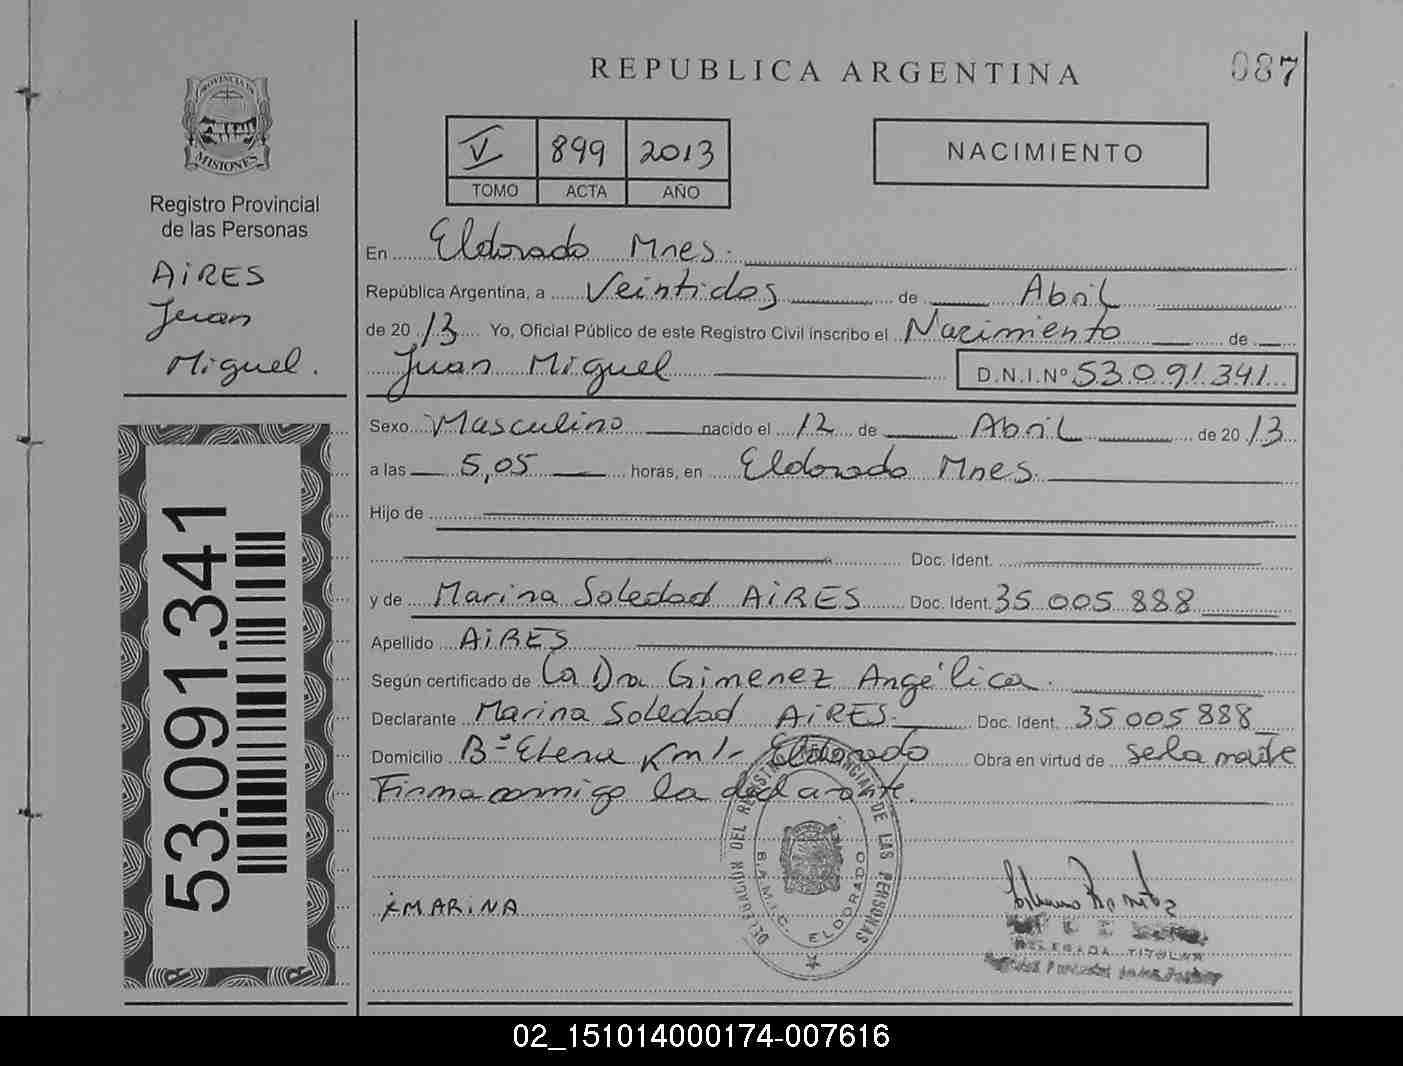 REPUBLICA ARGENTINA
087
PROVINCIA DE
MISIONES
Registro Provincial
de las Personas
AiRES
Juan
Miguel.
V 899 2013
TOMO ACTA AÑO
NACIMIENTO
En Eldorado Mnes.
República Argentina, a Veintidos de Abril
de 2013 Yo, Oficial Público de este Registro Civil inscribo el Nacimiento de
Juan Miguel D.N.I.Nº 53.091.341
Sexo Masculino nacido el 12 de Abril de 2013
a las 5,05 horas, en Eldorado Mnes.
Hijo de
Doc. Ident.
y de Marina Soledad AiRES Doc. Ident. 35 005 888
Apellido AiRES
Según certificado de la Dra Gimenez Angélica.
Declarante Marina Soledad AiRES Doc. Ident. 35 005 888
Domicilio Bº Elena Km 1- Eldorado Obra en virtud de ser la madre
Firma conmigo la declarante.
53.091.341
x MARiNA
DELEGACION DEL REGISTRO PROVINCIAL DE LAS PERSONAS
ELDORADO
DELEGADA TITULAR
02_151014000174-007616